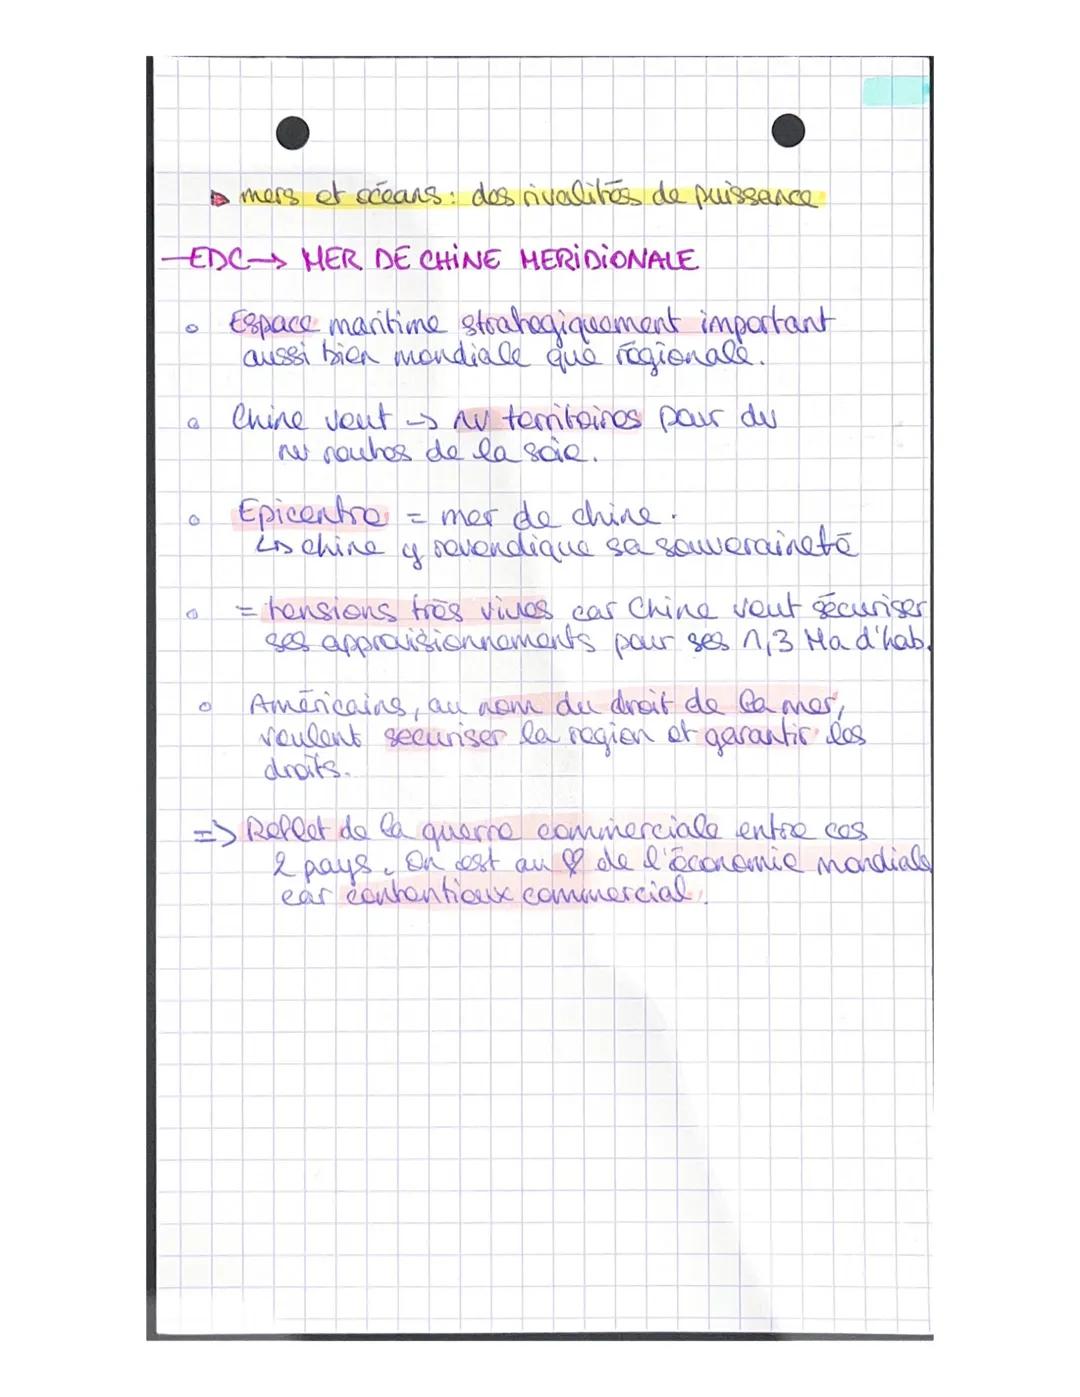 ▷ mers et océans : des rivalités de puissance
EDC → MER DE CHINE MERIDIONALE
° Espace maritime strategiquement important
aussi bien mondiale que régionale.
° Chine veut → nv territoires pour du
nv routes de la soie.
° Epicentre = mer de chine.
↳ chine y revendique sa souveraineté
° = tensions très vives car Chine veut sécuriser
ses approvisionnements pour ses 1,3 Ma d'hab.
° Américains, au nom du droit de la mer,
veulent securiser la region et garantir les
droits.
=> Reflet de la guerre commerciale entre ces
2 pays. On est au ♡ de l'économie mondiale
car contentieux commercial.